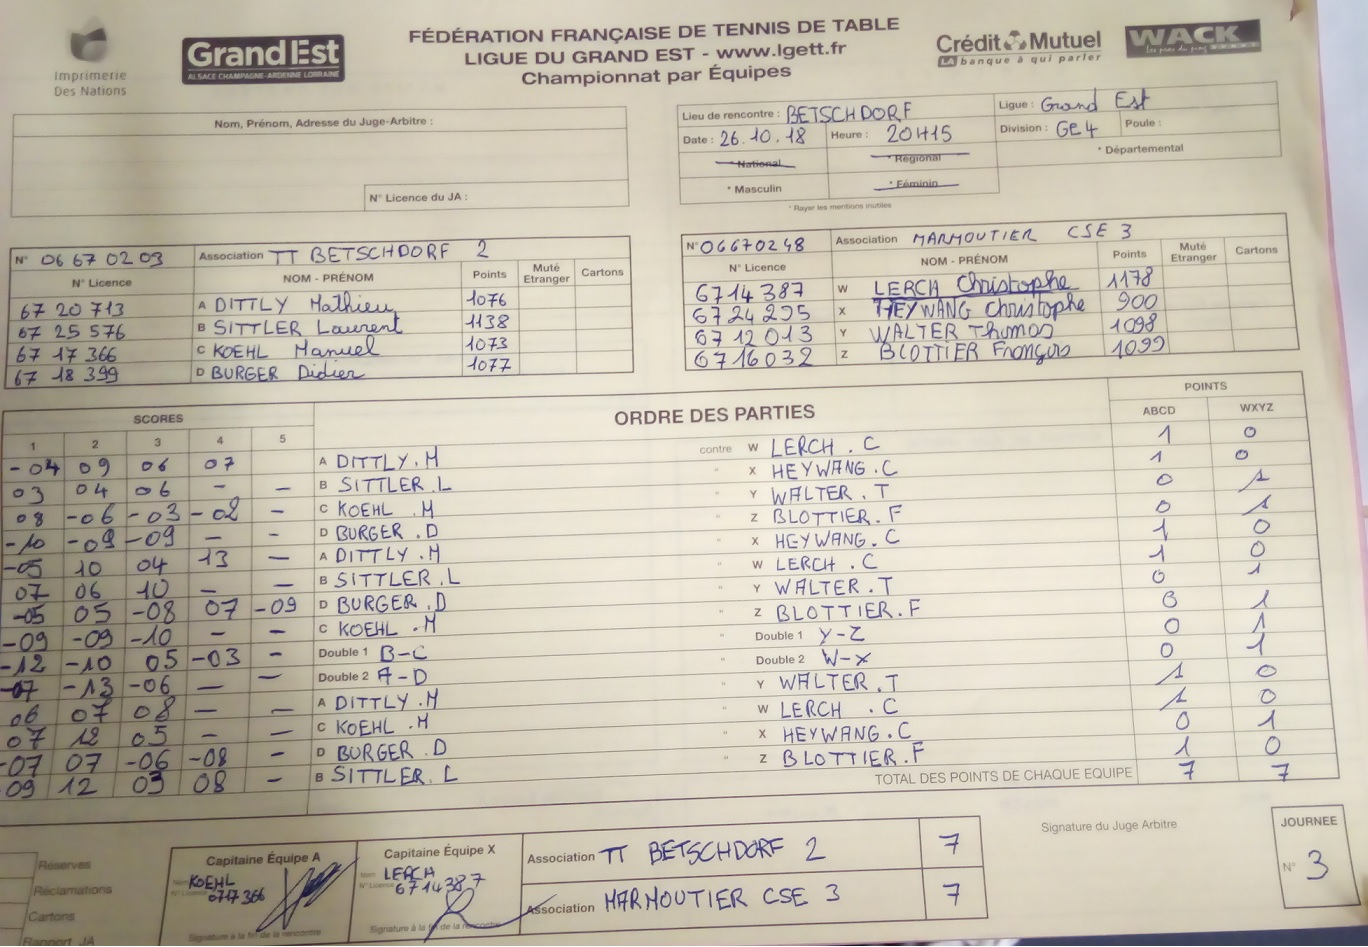 Imprimerie
Des Nations
GrandEst
ALSACE CHAMPAGNE-ARDENNE LORRAINE
FÉDÉRATION FRANÇAISE DE TENNIS DE TABLE
LIGUE DU GRAND EST - www.lgett.fr
Championnat par Équipes
Crédit Mutuel
LA banque à qui parler
WACK
Nom, Prénom, Adresse du Juge-Arbitre :
N° Licence du JA :
Lieu de rencontre : BETSCHDORF Ligue : Grand Est
Date : 26.10.18 Heure : 20H15 Division : GE4 Poule :
* National * Régional * Départemental
* Masculin * Féminin
* Rayer les mentions inutiles
N° 06 67 02 03 Association TT BETSCHDORF 2
N° Licence NOM - PRÉNOM Points Muté Etranger Cartons
67 20 713 A DITTLY Mathieu 1076
67 25 576 B SITTLER Laurent 1138
67 17 366 C KOEHL Manuel 1073
67 18 399 D BURGER Didier 1077
N° 06670248 Association MARMOUTIER CSE 3
N° Licence NOM - PRÉNOM Points Muté Etranger Cartons
6714387 W LERCH Christophe 1178
6724295 X HEYWANG Christophe 900
6712013 Y WALTER Thomas 1098
6716032 Z BLOTTIER François 1099
SCORES ORDRE DES PARTIES POINTS
1 2 3 4 5 ABCD WXYZ
-04 09 06 07 A DITTLY.M contre W LERCH.C 1 0
03 04 06 - - B SITTLER.L " X HEYWANG.C 1 0
08 -06 -03 -02 - C KOEHL.M " Y WALTER.T 0 1
-10 -09 -09 - - D BURGER.D " Z BLOTTIER.F 0 1
-05 10 04 13 - A DITTLY.M " X HEYWANG.C 1 0
07 06 10 - - B SITTLER.L " W LERCH.C 1 0
-05 05 -08 07 -09 D BURGER.D " Y WALTER.T 0 1
-09 -09 -10 - - C KOEHL.M " Z BLOTTIER.F 0 1
-12 -10 05 -03 - Double 1 B-C " Double 1 Y-Z 0 1
-07 -13 -06 - - Double 2 A-D " Double 2 W-X 0 1
06 07 08 - - A DITTLY.M " Y WALTER.T 1 0
07 12 05 - - C KOEHL.M " W LERCH.C 1 0
-07 07 -06 -08 - D BURGER.D " X HEYWANG.C 0 1
09 12 03 08 - B SITTLER.L " Z BLOTTIER.F 1 0
TOTAL DES POINTS DE CHAQUE EQUIPE 7 7
Réserves
Réclamations
Cartons
Rapport JA
Capitaine Équipe A
Nom KOEHL
N° Licence 6717366
Signature à la fin de la rencontre
Capitaine Équipe X
Nom LERCH
N° Licence 6714387
Signature à la fin de la rencontre
Association TT BETSCHDORF 2 7
Association MARMOUTIER CSE 3 7
Signature du Juge Arbitre
JOURNEE
N° 3